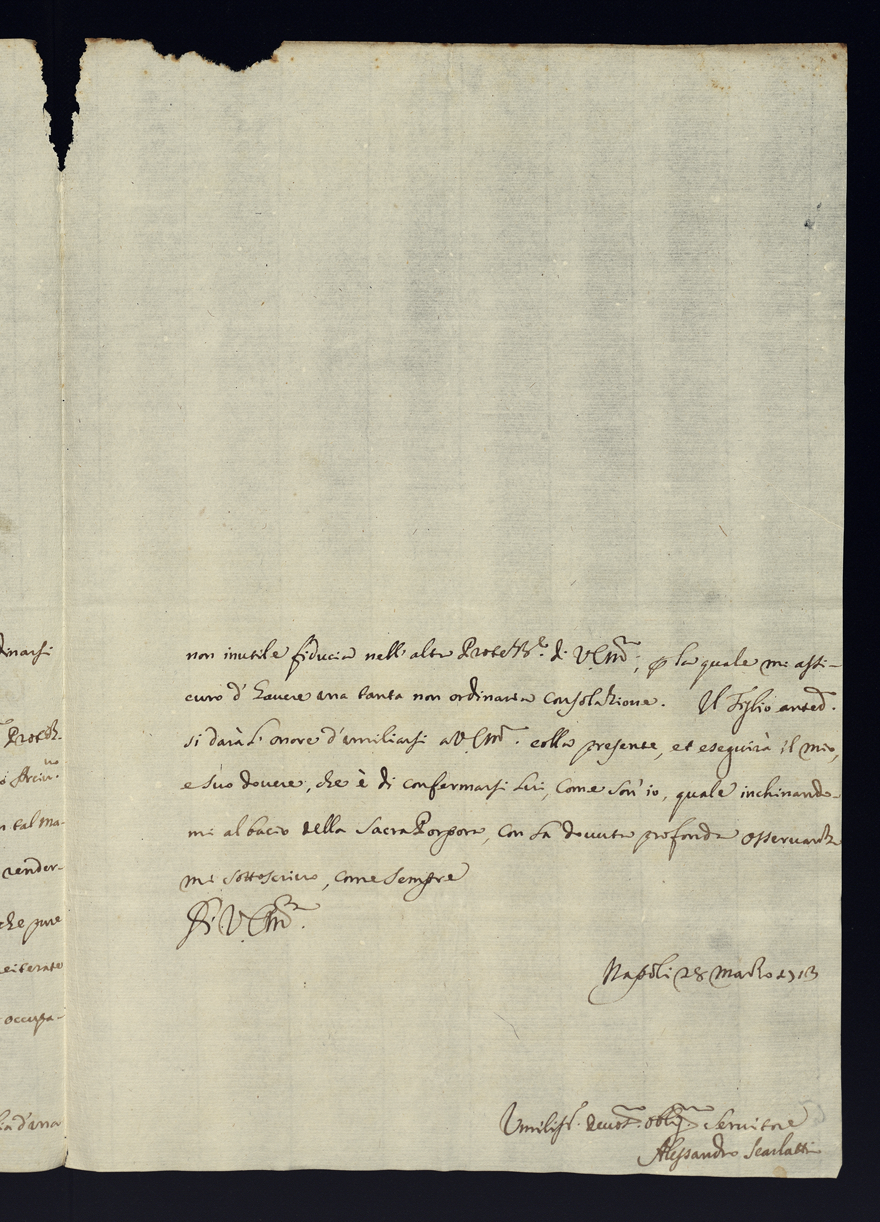 dinarsi
Protez.
Arciv.no
tal ma-
render-
che pure
reiterate
occupa-
d'una
non inutile fiducia nell'alta Protett.e di V. Em.za; p la quale mi assi-
curo d'havere una tanta non ordinaria consolazione. Il Figlio anted.
si darà l'onore d'umiliarsi a V. Em.za colla presente, et eseguirà il mio,
e suo dovere, che è di confermarsi Lei, come son' io, quale inchinando-
mi al bacio della Sacra Porpora, con la dovuta profonda osservanza
mi sottoscrivo, come sempre
Di V. Em.za
Napoli 28 Marzo 1713
Umiliss. devot. oblig. Servitore
Alessandro Scarlatti